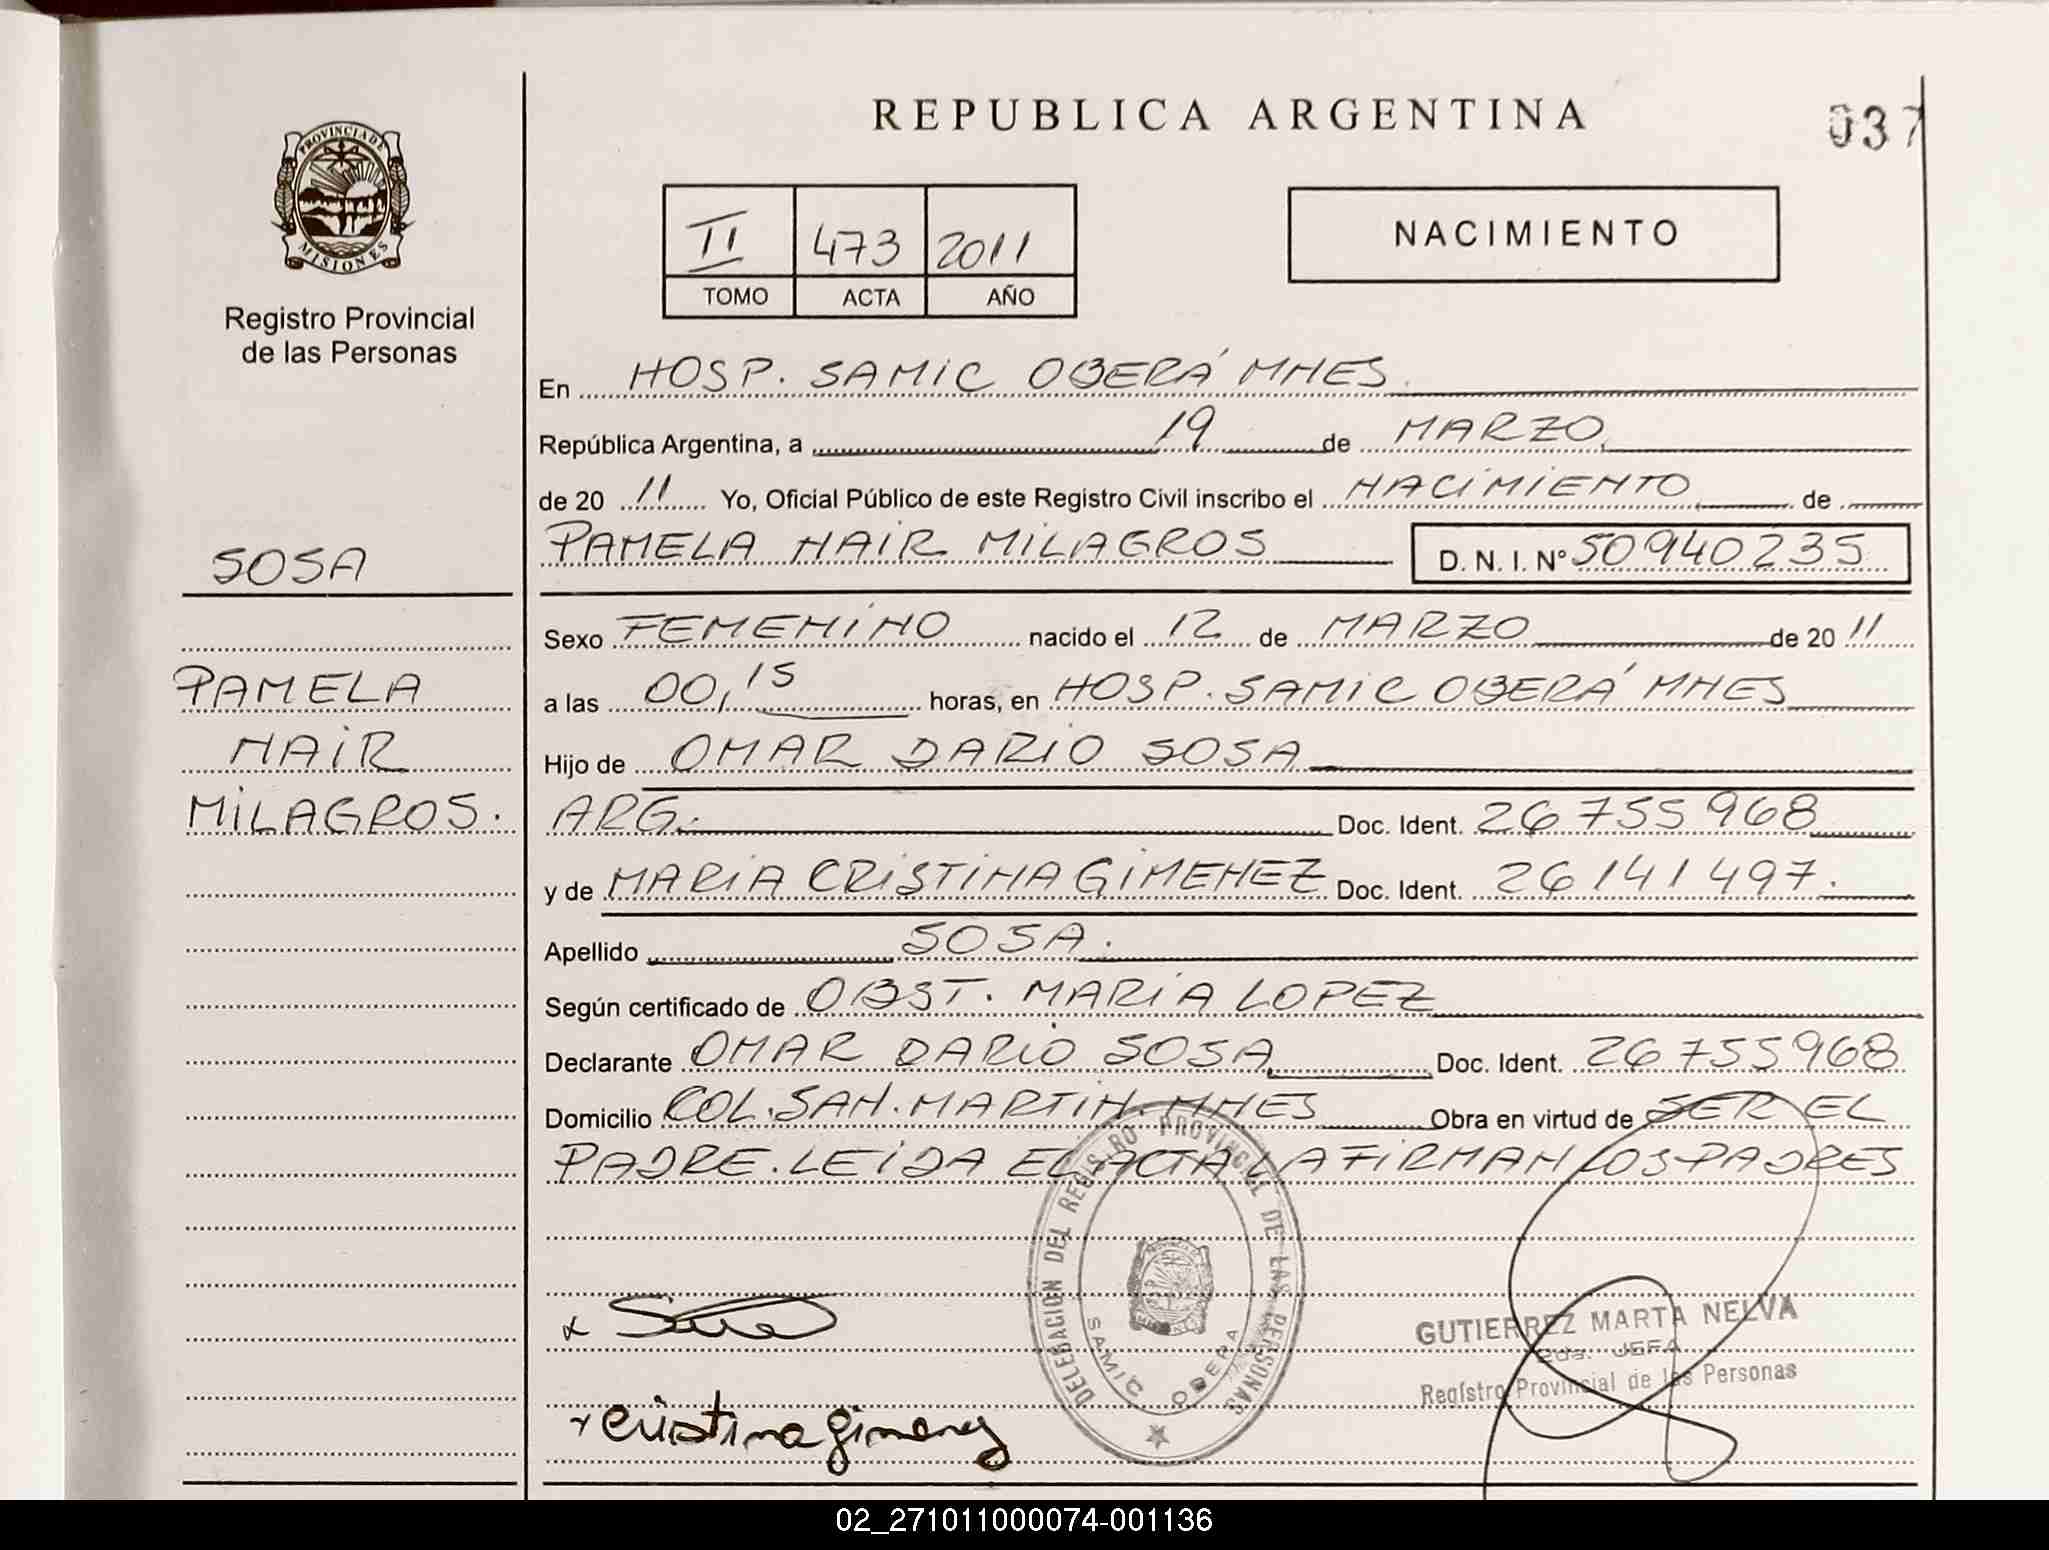 REPUBLICA ARGENTINA
037
PROVINCIA DE
MISIONES
Registro Provincial
de las Personas
II 473 2011
TOMO ACTA AÑO
NACIMIENTO
En HOSP. SAMIC OBERÁ MNES.
República Argentina, a 19 de MARZO
de 20 11 Yo, Oficial Público de este Registro Civil inscribo el NACIMIENTO de
PAMELA NAIR MILAGROS D. N. I. Nº 50940235
SOSA
PAMELA
NAIR
MILAGROS.
Sexo FEMENINO nacido el 12 de MARZO de 20 11
a las 00,15 horas, en HOSP. SAMIC OBERÁ MNES
Hijo de OMAR DARIO SOSA
ARG. Doc. Ident. 26755968
y de MARIA CRISTINA GIMENEZ Doc. Ident. 26141497.
Apellido SOSA.
Según certificado de OBST. MARIA LOPEZ
Declarante OMAR DARIO SOSA Doc. Ident. 26755968
Domicilio COL. SAN. MARTIN. MNES Obra en virtud de SER EL
PADRE. LEIDA EL ACTA LA FIRMAN LOS PADRES
DELEGACION DEL REGISTRO PROVINCIAL DE LAS PERSONAS
SAMIC OBERA
GUTIERREZ MARTA NELVA
2da. JEFA
Registro Provincial de las Personas
Cristina Gimenez
02_271011000074-001136